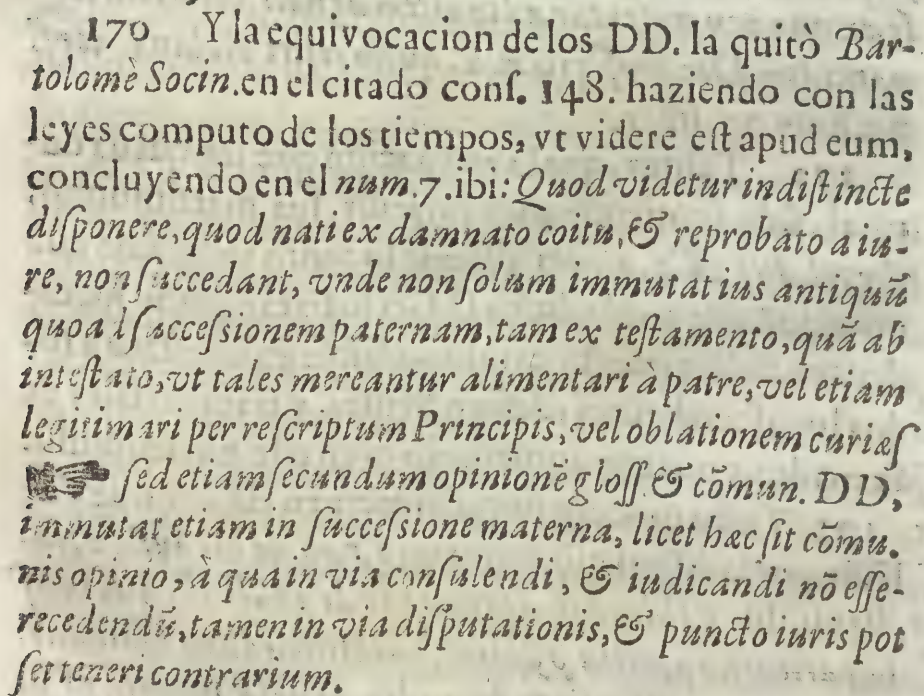 170 Y la equivocacion de los DD. la quitò Bar-
tolomè Socin. en el citado conſ. 148. haziendo con las
leyes computo de los tiempos, vt videre eſt apud eum,
concluyendo en el num. 7. ibi: Quod videtur indiſtincte
diſponere, quod nati ex damnato coitu, & reprobato a iu-
re, non ſuccedant, vnde non ſolum immutat ius antiquũ
quoad ſucceſsionem paternam, tam ex teſtamento, quã ab
inteſtato, vt tales mereantur alimentari à patre, vel etiam
legitimari per reſcriptum Principis, vel oblationem curiæſ
☞ ſed etiam ſecundum opinionē gloſſ. & cõmun. DD,
immutat etiam in ſucceſsione materna, licet hæc ſit cõmu.
nis opinio, à qua in via conſulendi, & iudicandi nõ eſſe-
recedendũ, tamen in via diſputationis, & puncto iuris pot
ſet teneri contrarium.